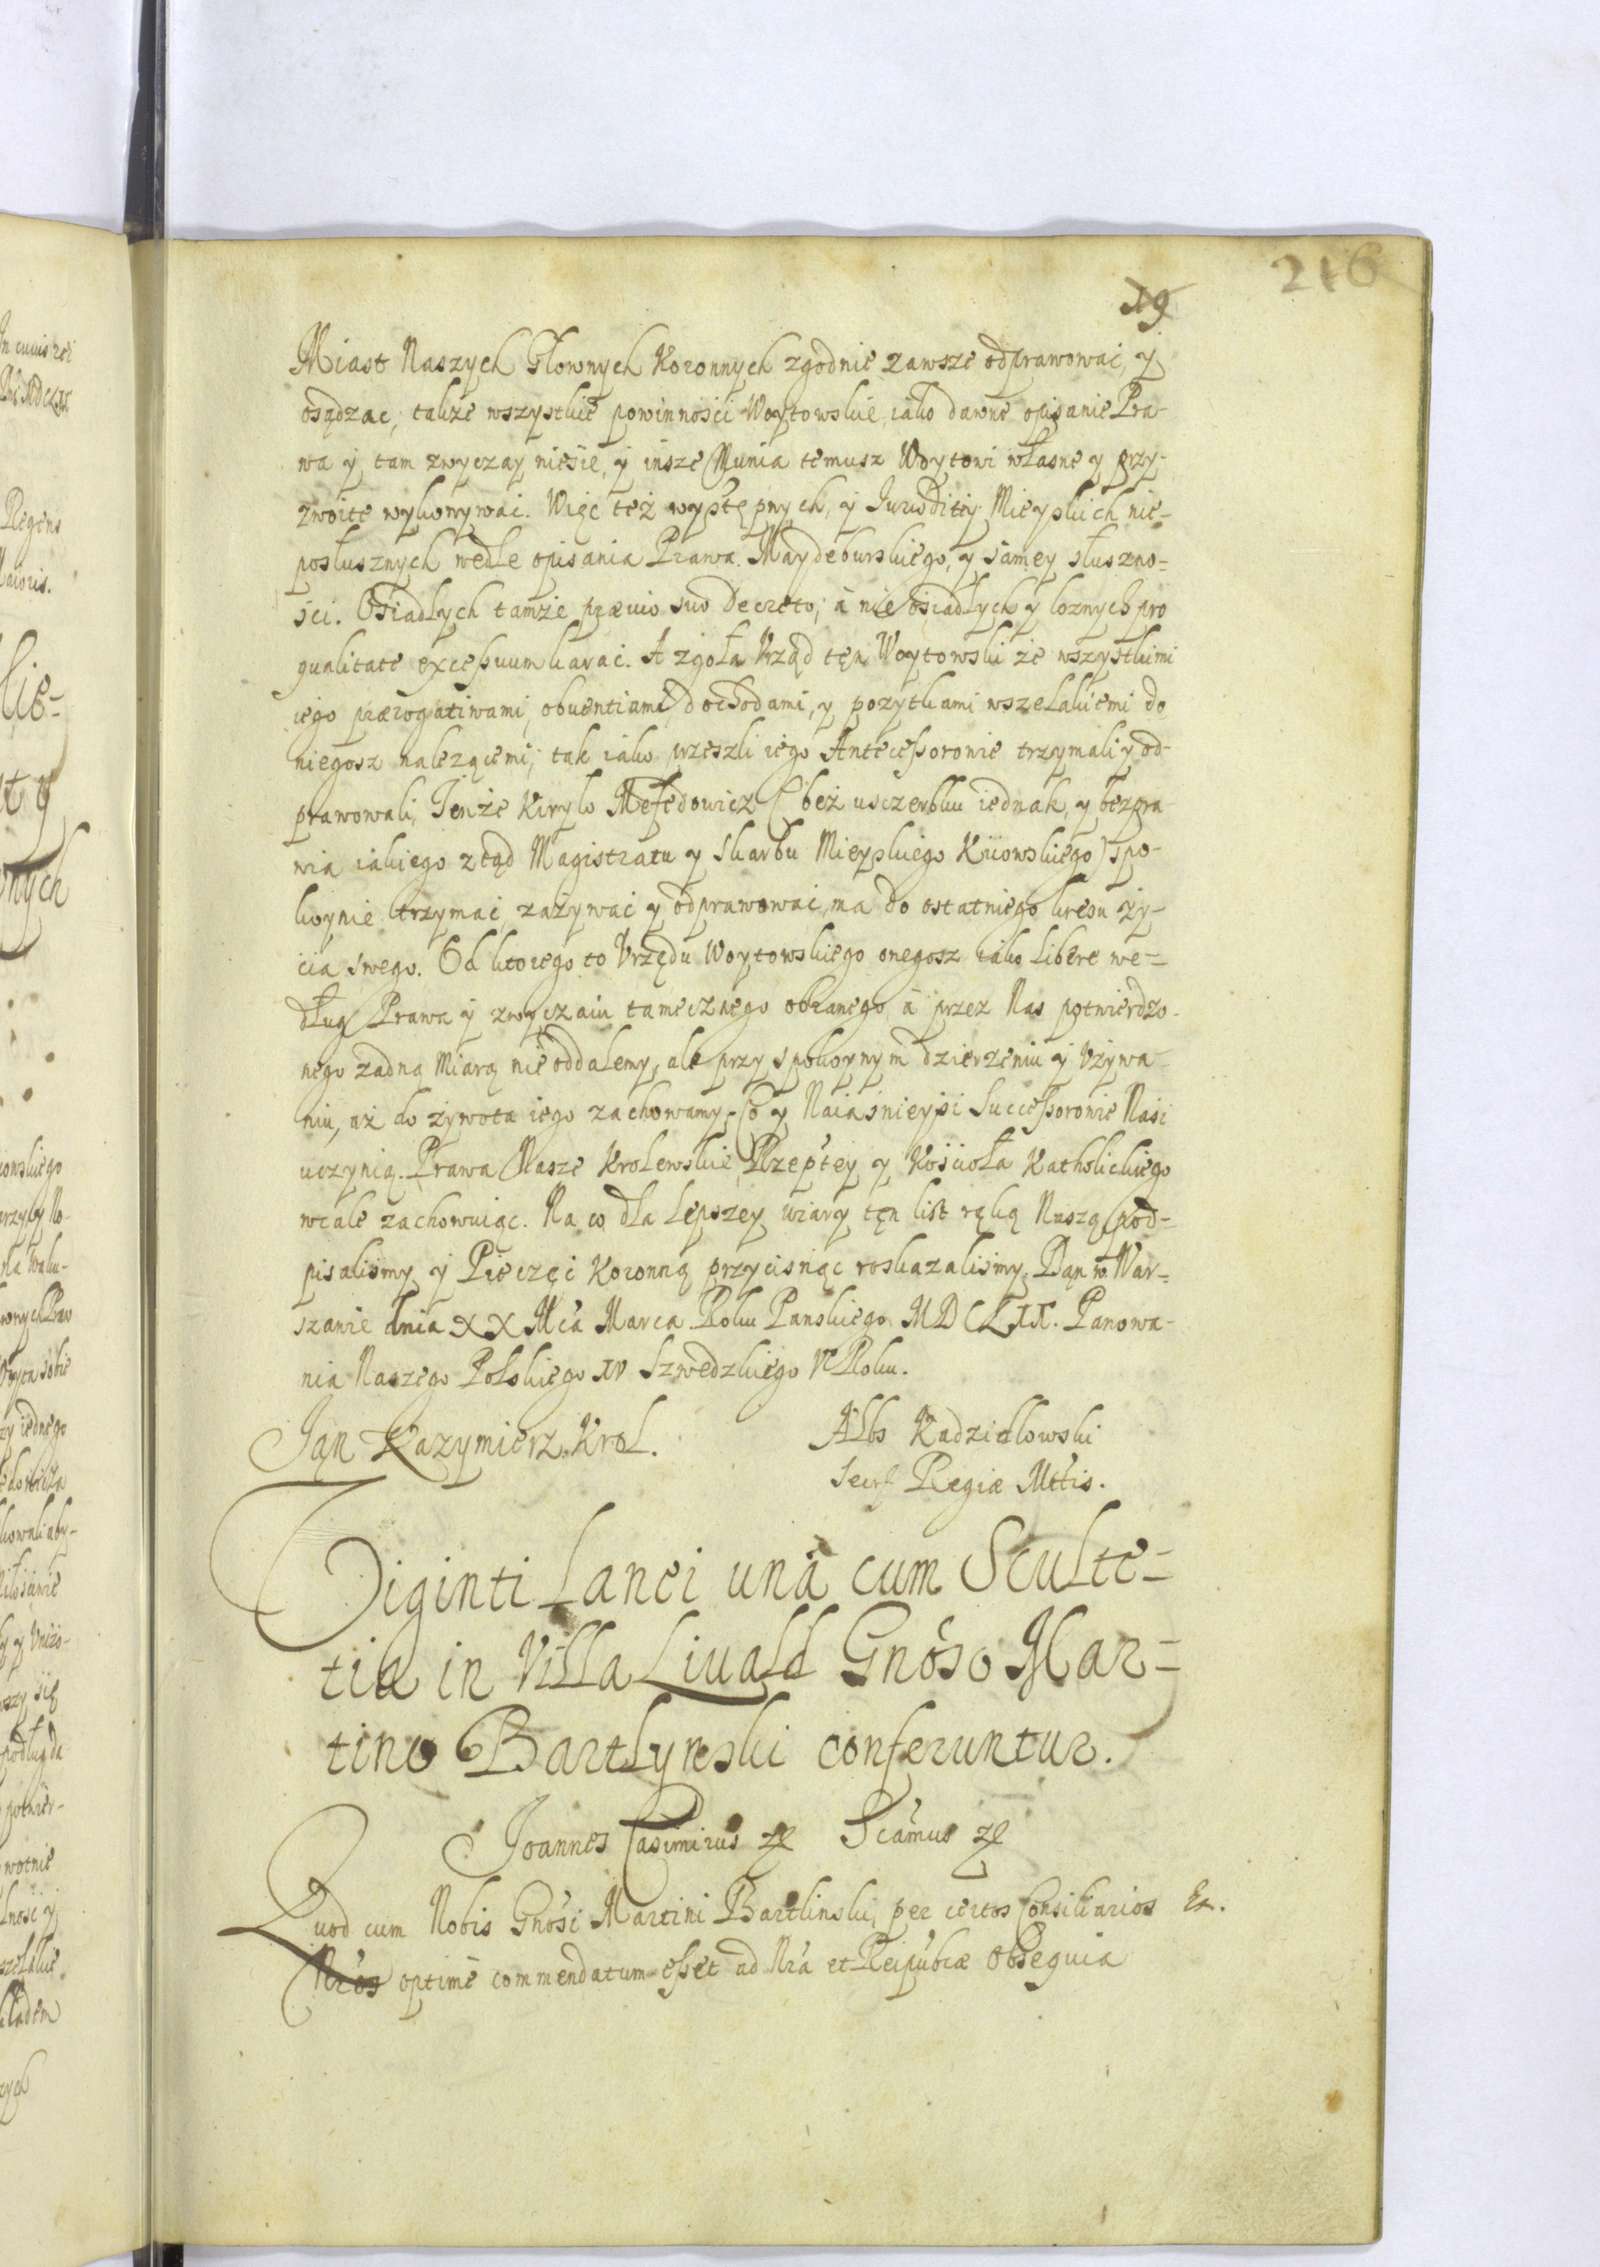 216
19
Miast Naszych Głownych Koronnych zgodnie zawsze odprawować, y
osądzac, takze wszystkie powinnosci Woytowskie, iako dawne opisanie Pra-
wa y tam zwyczay niesie, y insze Munia temusz Woytowi własne y przy-
zwoite wykonywać. Więc też występnych, y Iurisditiy Mieyskich nie-
posłusznych wedle opisania Prawa Maydeburskiego, y samey słuszno-
sci. Osiadłych tamże prævio suo Decreto, à nieosiadłych y loznych pro
qualitate excessuum karać. A zgoła Vrząd tęn Woytowski ze wszystkimi
iego prærogatiwami, obventiami, dochodami, y pozytkami wszelakiemi do
niegosz nalezącemi, tak iako przeszli iego Antecessorowie trzymali y od-
prawowali, Tenże Kiryło Mefedowicz (bez usczerbku iednak, y bezpra-
wia iakiego ztąd Magistratu y Skarbu Mieyskiego Kiiowskiego) spo-
koynie trzymać, zażywać y odprawować, ma do ostatniego kresu ży-
cia swego. Od ktorego to Vrzędu Woytowskiego onegosz iako libere we-
dług Prawa y zwyczaiu tamecznego obranego, à przez Nas potwierdzo-
nego zadną Miarą nie oddalemy, ale przy spokoynym dzierzeniu y Vżywa-
niu, aż do żywota iego zachowamy, Co y Naiasnieysi Successorowie Nasi
uczynią. Prawa Nasze Krolewskie, Rzeptey y Kościoła Katholickiego
wcale zachowuiąc. Na co dla lepszey wiary tęn list ręką Naszą pod-
pisalismy y Pieczęć Koronną przycisnąc roskazalismy. Dąn w War-
szawie dnia XX Mca Marca Roku Panskiego MDCLIX. Panowa-
nia Naszego Polskiego XI Szwedzkiego Roku.
Jąn Kazymierz Krol.
Albs Kadzidlowski
Secr Regiæ Mttis.
Viginti Lanei unà cum Sculte-
tia in Villa Livald Gnoso Mar-
tino Bartlynski conferuntur.
Joannes Casimirus Scamus
Quod cum Nobis Gnosi Martini Bartlinski, per certos Consiliarios Ex.
Nros optimè commendatum esset ad Nra et Reipubcæ Obsequia